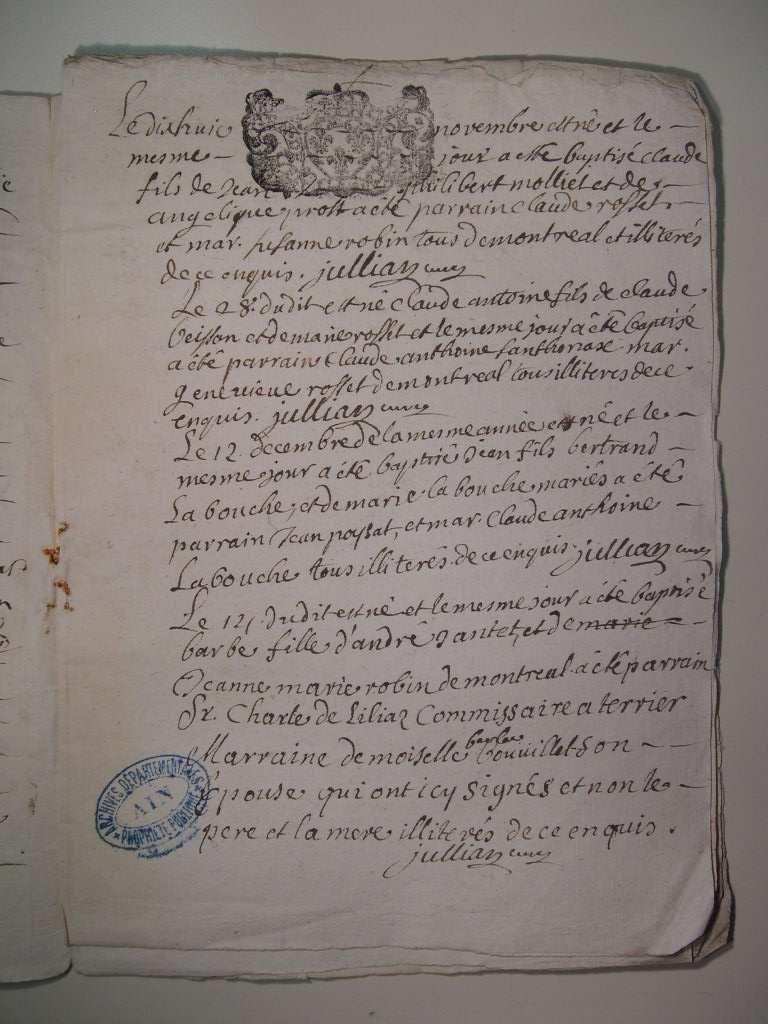 Le dixhuic novembre est né et le
mesme jour a etté baptisé Claude
fils de Jean philibert molliet et de
angelique prost a été parrain Claude rosset
et mar. susanne robin tous de montreal et illiterés
de ce enquis. jullian curé
Le 28. dudit est né Claude antoine fils de Claude
veisson et de marie rosset et le mesme jour a été baptisé
a été parrain Claude anthoine mar.
genevieve rosset de montreal tous illiteres de ce
enquis. jullian curé
Le 12 decembre de la mesme année est né et le
mesme jour a été baptisé Jean fils bertrand
La bouche, et de marie la bouche mariés a été
parrain Jean et mar. Claude anthoine
La bouche tous illiterés de ce enquis. jullian curé
Le dudit est né et le mesme jour a été baptisé
barbe fille d'andré Jantet, et de marie
Jeanne marie robin de montreal a été parrain
Sr. Charle de Liliaz Commissaire a terrier
Marraine demoiselle barbe bouvillet son
épouse qui ont icy signés et non le
pere et la mere illiterés de ce enquis.
jullian curé
ARCHIVES DÉPARTEMENTALES
AIN
PROPRIÉTÉ PUBLIQUE